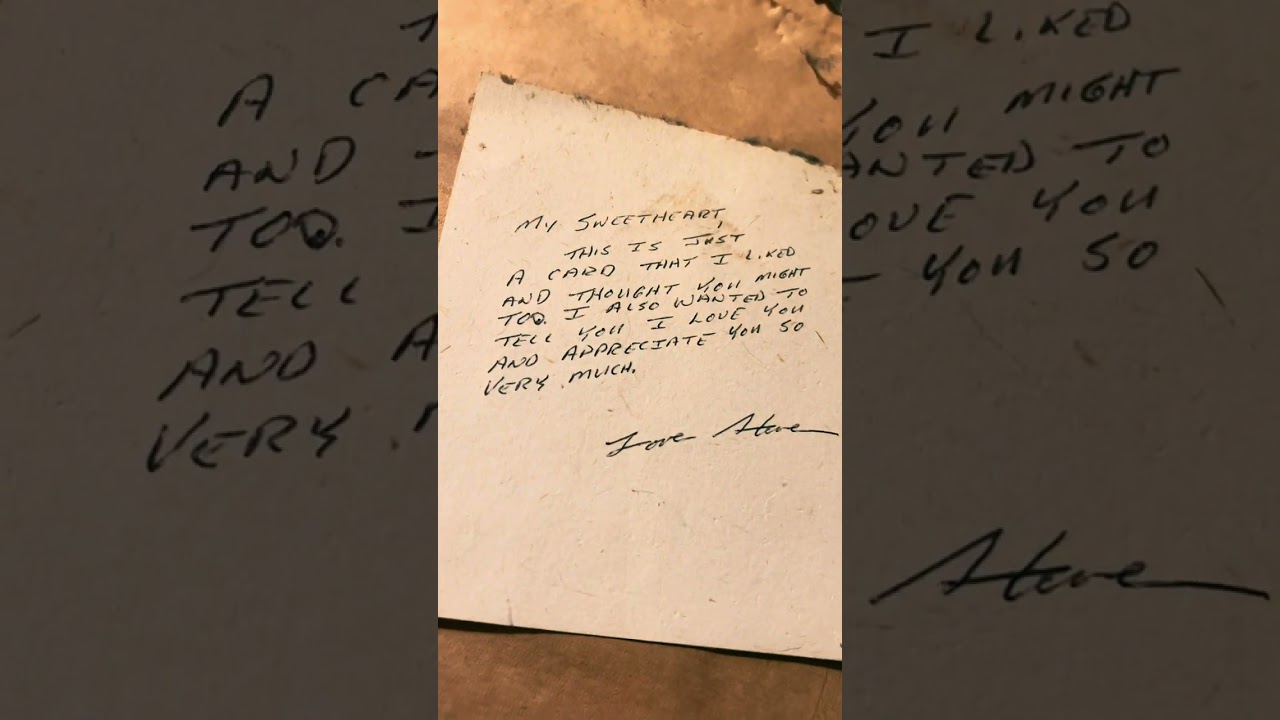 MY SWEETHEART,
THIS IS JUST
A CARD THAT I LIKED
AND THOUGHT YOU MIGHT
TOO. I ALSO WANTED TO
TELL YOU I LOVE YOU
AND APPRECIATE YOU SO
VERY MUCH.
Love Steve